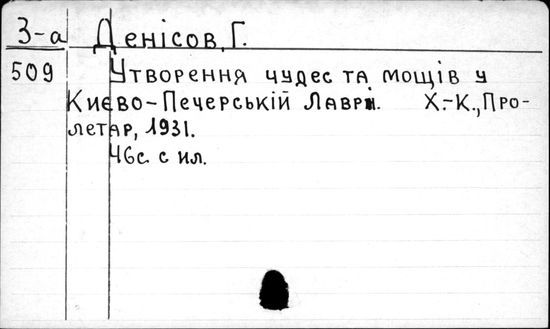 З-а Денісов, Г.
509 Утворення чудес та мощів у
Києво-Печерській Лаврі. Х.-К., Про-
летар, 1931.
46с. с ил.